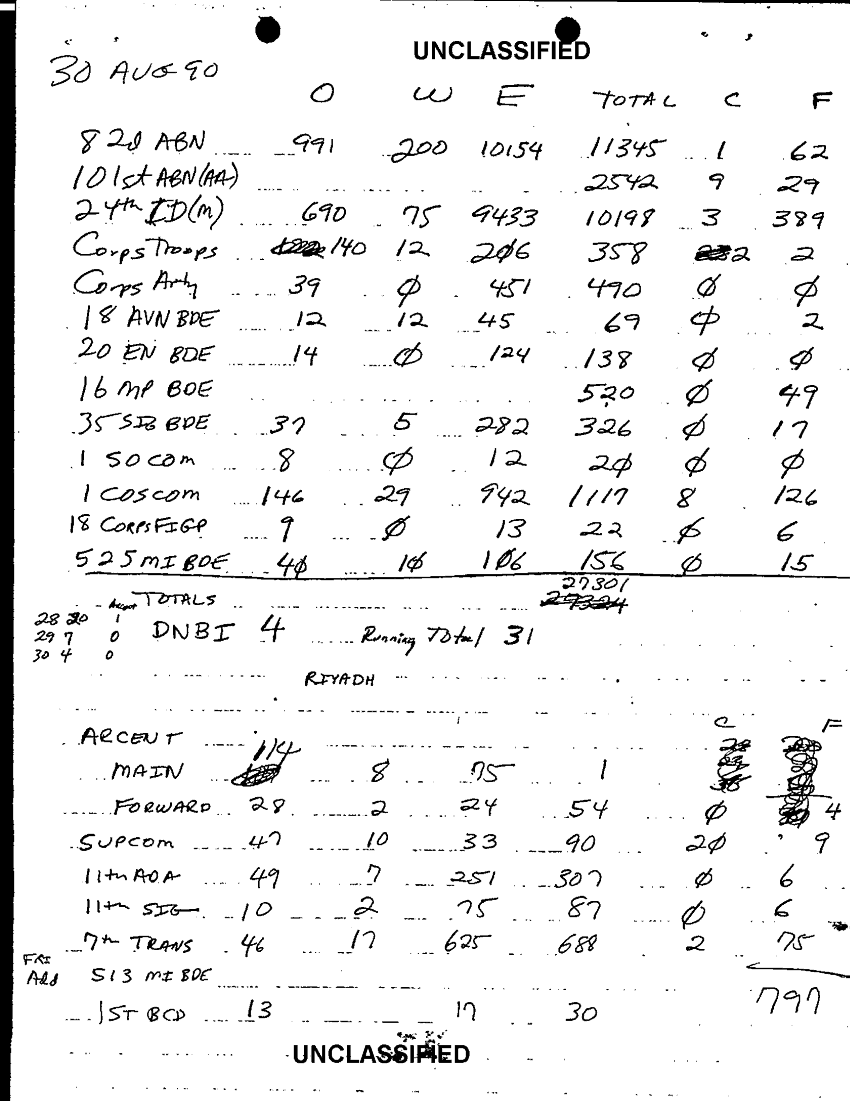 UNCLASSIFIED
30 AUG 90
O W E TOTAL C F
82d ABN 991 200 10154 11345 1 62
101st ABN(AA) 2542 9 29
24th ID(M) 690 75 9433 10198 3 389
Corps Troops 140 12 206 358 2 2
Corps Arty 39 Ø 451 490 Ø Ø
18 AVN BDE 12 12 45 69 Ø 2
20 EN BDE 14 Ø 124 138 Ø Ø
16 MP BDE 520 Ø 49
35 SIG BDE 37 5 282 326 Ø 17
1 SOCOM 8 Ø 12 2Ø Ø Ø
1 COSCOM 146 29 942 1117 8 126
18 CORPS FIGP 9 Ø 13 22 Ø 6
525 MI BDE 4Ø 1Ø 1Ø6 156 Ø 15
27301
TOTALS 27324
28 20 1
29 7 0 DNBI 4 Running Total 31
30 4 0
RIYADH
C F
ARCENT
114
MAIN 8 75 1
FORWARD 28 2 24 54 Ø 4
SUPCOM 47 10 33 90 2Ø 9
11th ADA 49 7 251 307 Ø 6
11th SIG 10 2 75 87 Ø 6
7th TRANS 46 17 625 688 2 75
FRI
Add 513 MI BDE
797
1ST BCD 13 17 30
UNCLASSIFIED